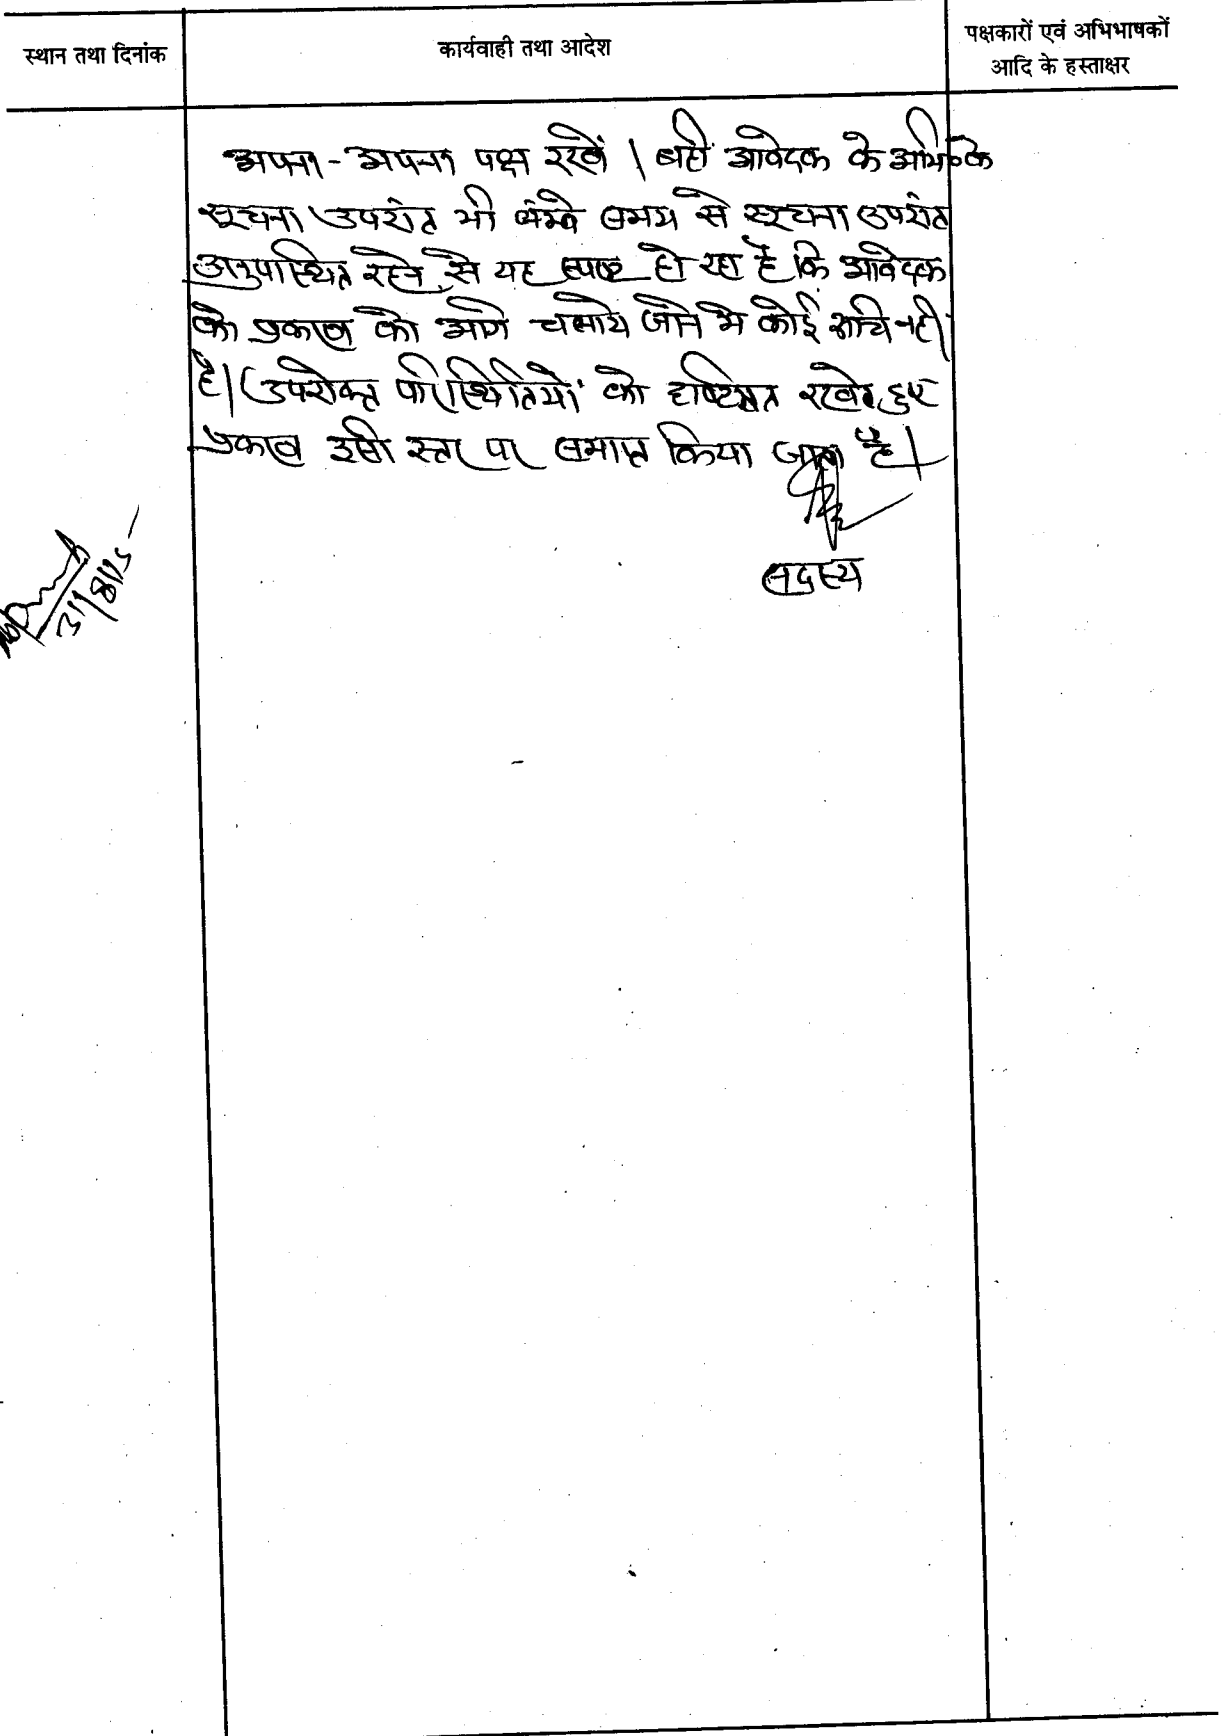 स्थान तथा दिनांक
कार्यवाही तथा आदेश
पक्षकारों एवं अभिभाषकों
आदि के हस्ताक्षर
अपना-अपना पक्ष रखें। वहीं आवेदक के अभि० के
सूचना उपरांत भी लंम्बे समय से सूचना उपरांत
अनुपस्थित रहने से यह स्पष्ट हो रहा है कि आवेदक
को प्रकरण को आगे चलाये जाने मे कोई रूचि नही
है। उपरोक्त परिस्थितियों को दृष्टिगत रखते हुए
प्रकरण इसी स्तर पर समाप्त किया जाता है।
सदस्य
31/8/15